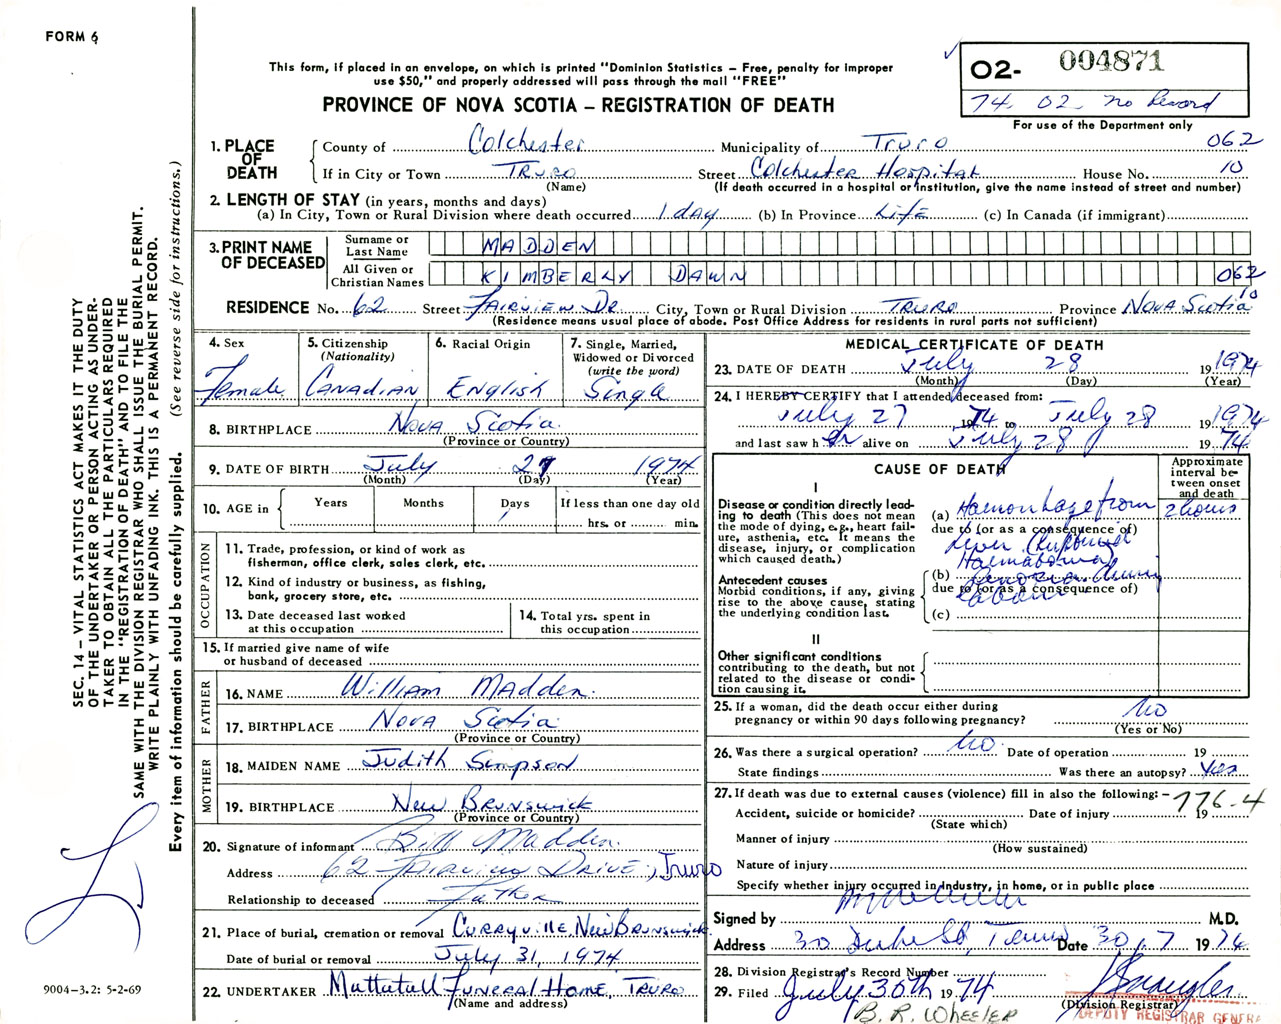 FORM 6
This form, if placed in an envelope, on which is printed "Dominion Statistics – Free, penalty for improper
use $50," and properly addressed will pass through the mail "FREE"
PROVINCE OF NOVA SCOTIA – REGISTRATION OF DEATH
O2- 004871
74. 02 no Record
For use of the Department only
1. PLACE OF DEATH
County of Colchester Municipality of Truro 062
If in City or Town Truro Street Colchester Hospital House No. 10
(Name) (If death occurred in a hospital or institution, give the name instead of street and number)
2. LENGTH OF STAY (in years, months and days)
(a) In City, Town or Rural Division where death occurred 1 day (b) In Province Life (c) In Canada (if immigrant)
3. PRINT NAME OF DECEASED
Surname or Last Name MADDEN
All Given or Christian Names KIMBERLY DAWN 062
10
RESIDENCE No. 62 Street Fairview Dr. City, Town or Rural Division Truro Province Nova Scotia
(Residence means usual place of abode. Post Office Address for residents in rural parts not sufficient)
4. Sex Female
5. Citizenship (Nationality) Canadian
6. Racial Origin English
7. Single, Married, Widowed or Divorced (write the word) Single
8. BIRTHPLACE Nova Scotia
(Province or Country)
9. DATE OF BIRTH July 27 1974
(Month) (Day) (Year)
10. AGE in Years Months Days 1 If less than one day old
hrs. or min.
OCCUPATION
11. Trade, profession, or kind of work as
fisherman, office clerk, sales clerk, etc.
12. Kind of industry or business, as fishing,
bank, grocery store, etc.
13. Date deceased last worked
at this occupation
14. Total yrs. spent in
this occupation
15. If married give name of wife
or husband of deceased
FATHER
16. NAME William Madden.
17. BIRTHPLACE Nova Scotia
(Province or Country)
MOTHER
18. MAIDEN NAME Judith Simpson
19. BIRTHPLACE New Brunswick
(Province or Country)
20. Signature of informant Bill Madden.
Address 62 Fairview Drive, Truro
Relationship to deceased Father
21. Place of burial, cremation or removal Curryville, New Brunswick
Date of burial or removal July 31, 1974
22. UNDERTAKER Mattatall Funeral Home, Truro
(Name and address)
MEDICAL CERTIFICATE OF DEATH
23. DATE OF DEATH July 28 1974
(Month) (Day) (Year)
24. I HEREBY CERTIFY that I attended deceased from:
July 27 1974 to July 28 1974
and last saw her alive on July 28 1974
CAUSE OF DEATH
Approximate interval between onset and death
I
Disease or condition directly leading to death (This does not
the mode of dying, e.g., heart failure, asthenia, etc. It means the
disease, injury, or complication
which caused death.)
(a) Haemorrhage from 2 hours
due to (or as a consequence of)
Liver
Haematoma)
Antecedent causes
Morbid conditions, if any, giving
rise to the above cause, stating
the underlying condition last.
(b) during
due to (or as a consequence of)
labour
(c)
II
Other significant conditions
contributing to the death, but not
related to the disease or condition causing it.
25. If a woman, did the death occur either during
pregnancy or within 90 days following pregnancy? No
(Yes or No)
26. Was there a surgical operation? No. Date of operation 19
State findings Was there an autopsy? Yes
27. If death was due to external causes (violence) fill in also the following: – 776.4
Accident, suicide or homicide? Date of injury 19
(State which)
Manner of injury
(How sustained)
Nature of injury
Specify whether injury occurred in industry, in home, or in public place
Signed by M.D.
Address 30 St, Truro Date 30.7 1974
28. Division Registrar's Record Number
29. Filed July 30th 1974
(Division Registrar)
B. R. WHEELER
DEPUTY REGISTRAR GENERA
SEC. 14 – VITAL STATISTICS ACT MAKES IT THE DUTY
OF THE UNDERTAKER OR PERSON ACTING AS UNDER-
TAKER TO OBTAIN ALL THE PARTICULARS REQUIRED
IN THE "REGISTRATION OF DEATH" AND TO FILE THE
SAME WITH THE DIVISION REGISTRAR WHO SHALL ISSUE THE BURIAL PERMIT.
WRITE PLAINLY WITH UNFADING INK. THIS IS A PERMANENT RECORD.
Every item of information should be carefully supplied. (See reverse side for instructions.)
9004-3.2: 5-2-69